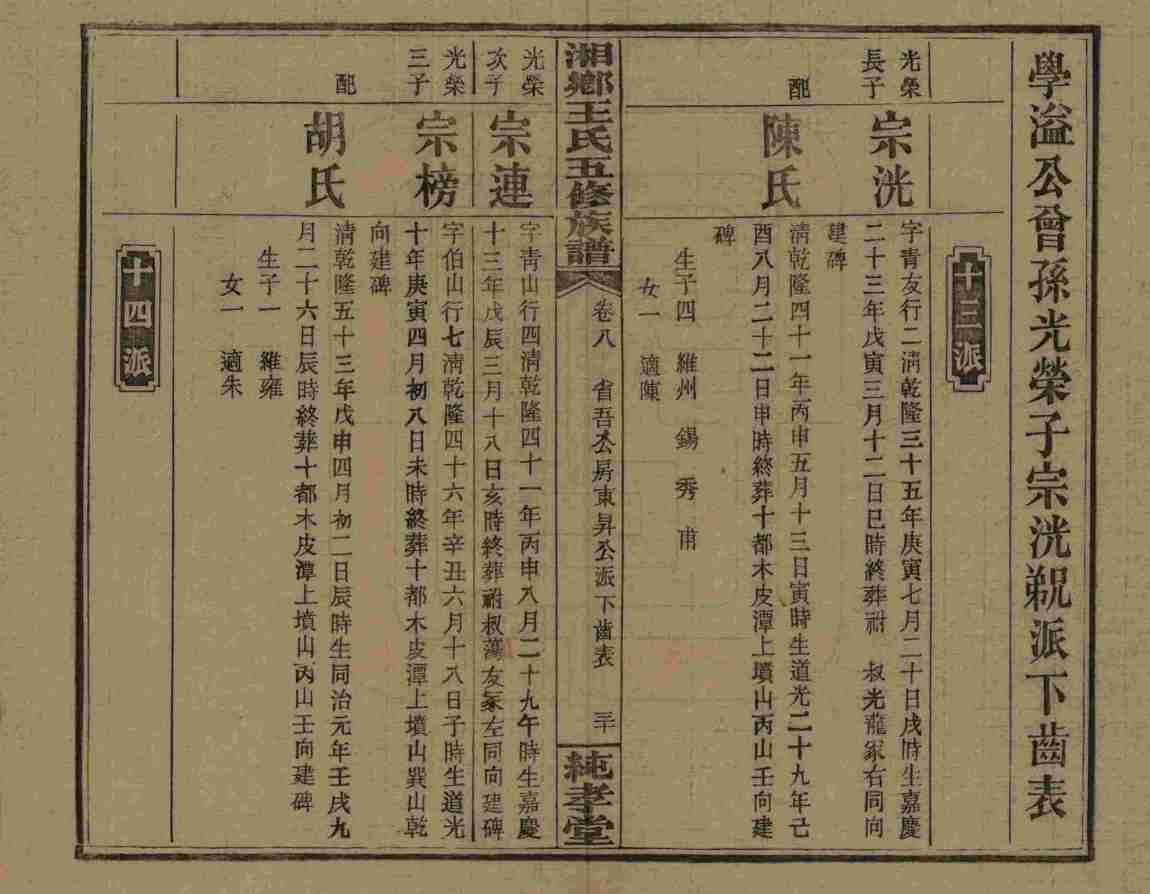 學溢公曾孫光榮子宗洸㸙派下齒表
十三派
光榮
長子
宗洸
字青友行二清乾隆三十五年庚寅七月二十日戌時生嘉慶
二十三年戊寅三月十二日巳時終葬祔 叔光龍冢右同向
建碑
配
陳氏
清乾隆四十一年丙申五月十三日寅時生道光二十九年己
酉八月二十二日申時終葬十都木皮潭上墳山丙山壬向建
碑
生子四 維州 錫 秀 甫
女一 適陳
湘鄉王氏五修族譜
卷八 省吾公房東昇公派下齒表 三十
純孝堂
光榮
次子
宗連
字青山行四清乾隆四十一年丙申八月二十九午時生嘉慶
十三年戊辰三月十八日亥時終葬祔叔藻友冢左同向建碑
光榮
三子
宗榜
字伯山行七清乾隆四十六年辛丑六月十八日子時生道光
十年庚寅四月初八日未時終葬十都木皮潭上墳山巽山乾
向建碑
配
胡氏
清乾隆五十三年戊申四月初二日辰時生同治元年壬戌九
月二十六日辰時終葬十都木皮潭上墳山丙山壬向建碑
生子一 維雍
女一 適朱
十四派